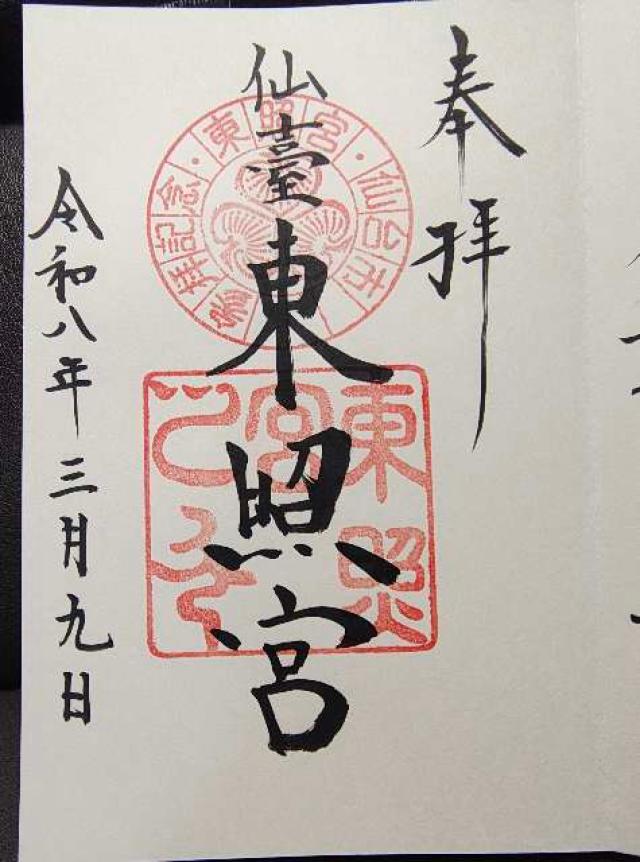 奉拝
仙臺東照宮
東照宮・仙台市
参拝記念・
東照宮
令和八年三月九日